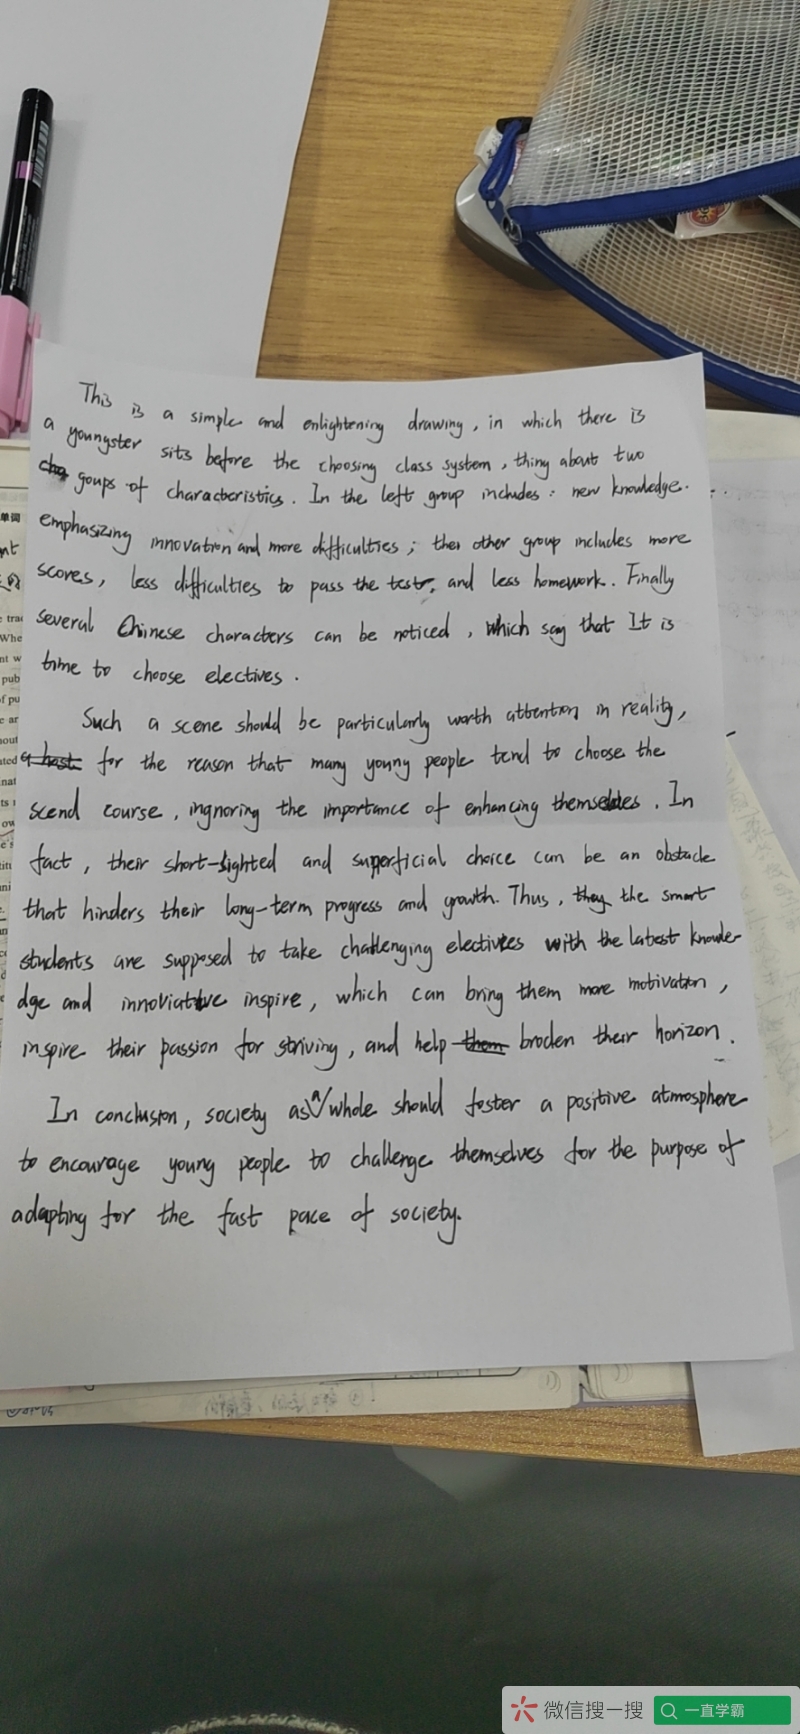 This is a simple and enlightening drawing, in which there is
a youngster sits before the choosing class system, thing about two
goups of characteristics. In the left group includes: new knowledge.
emphasizing innovation and more difficulties; ther other group includes more
scores, less difficulties to pass the test, and less homework. Finally
several Chinese characters can be noticed, which say that It is
time to choose electives.
Such a scene should be particularly worth attention in reality,
for the reason that many young people tend to choose the
scend course, ingnoring the importance of enhancing themselves. In
fact, their short-sighted and superficial choice can be an obstacle
that hinders their long-term progress and growth. Thus, they the smart
students are supposed to take challenging electives with the latest knowle-
dge and innoviative inspire, which can bring them more motivation,
inspire their passion for striving, and help broden their horizon.
In conclusion, society as a whole should foster a positive atmosphere
to encourage young people to challenge themselves for the purpose of
adapting for the fast pace of society.
单词
微信搜一搜
一直学霸